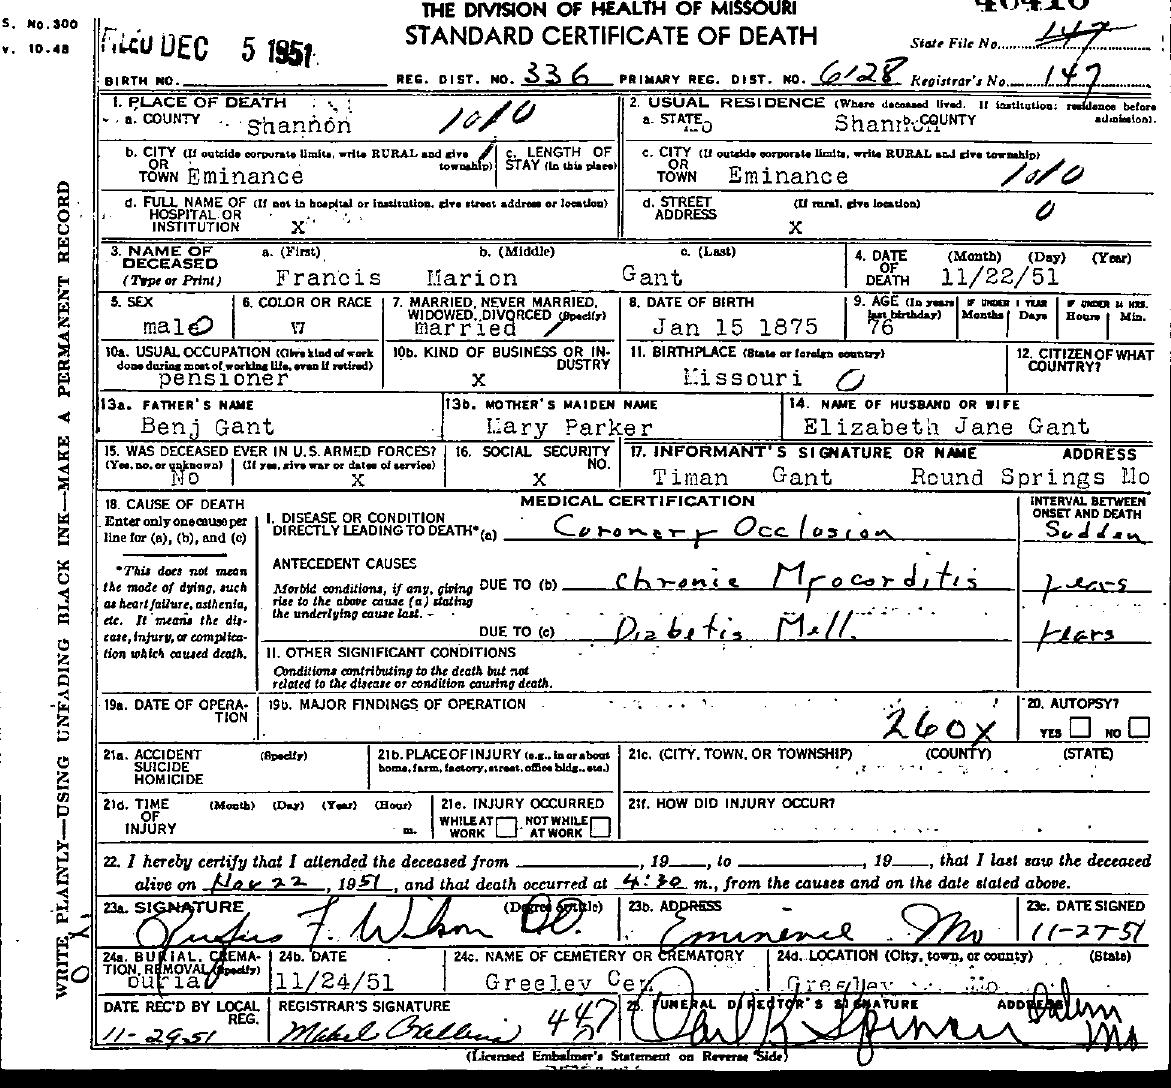 THE DIVISION OF HEALTH OF MISSOURI
STANDARD CERTIFICATE OF DEATH
S. No. 300
v. 10-48
FILED DEC 5 1951
State File No. 147
BIRTH NO. REG. DIST. NO. 336 PRIMARY REG. DIST. NO. 6128 Registrar's No. 147
1. PLACE OF DEATH
a. COUNTY Shannon 1010
2. USUAL RESIDENCE (Where deceased lived. If institution: residence before admission).
a. STATE Mo b. COUNTY Shannon
b. CITY (If outside corporate limits, write RURAL and give township)
OR
TOWN Eminance
c. LENGTH OF
STAY (In this place)
c. CITY (If outside corporate limits, write RURAL and give township)
OR
TOWN Eminance 1010
d. FULL NAME OF (If not in hospital or institution, give street address or location)
HOSPITAL OR
INSTITUTION X
d. STREET (If rural, give location)
ADDRESS X 0
3. NAME OF
DECEASED
(Type or Print)
a. (First) b. (Middle) c. (Last)
Francis Marion Gant
4. DATE (Month) (Day) (Year)
OF
DEATH 11/22/51
5. SEX
male
6. COLOR OR RACE
W
7. MARRIED, NEVER MARRIED,
WIDOWED, DIVORCED (Specify)
married
8. DATE OF BIRTH
Jan 15 1875
9. AGE (In years last birthday)
76
IF UNDER 1 YEAR
Months Days
IF UNDER 24 HRS.
Hours Min.
10a. USUAL OCCUPATION (Give kind of work
done during most of working life, even if retired)
pensioner
10b. KIND OF BUSINESS OR IN-
DUSTRY
X
11. BIRTHPLACE (State or foreign country)
Missouri 0
12. CITIZEN OF WHAT
COUNTRY?
13a. FATHER'S NAME
Benj Gant
13b. MOTHER'S MAIDEN NAME
Mary Parker
14. NAME OF HUSBAND OR WIFE
Elizabeth Jane Gant
15. WAS DECEASED EVER IN U.S. ARMED FORCES?
(Yes, no, or unknown) (If yes, give war or dates of service)
No X
16. SOCIAL SECURITY
NO.
X
17. INFORMANT'S SIGNATURE OR NAME ADDRESS
Timan Gant Round Springs Mo
18. CAUSE OF DEATH
Enter only one cause per
line for (a), (b), and (c)
*This does not mean
the mode of dying, such
as heart failure, asthenia,
etc. It means the dis-
ease, injury, or complica-
tion which caused death.
MEDICAL CERTIFICATION
INTERVAL BETWEEN
ONSET AND DEATH
I. DISEASE OR CONDITION
DIRECTLY LEADING TO DEATH*(a) Coronery Occlusion Sudden
ANTECEDENT CAUSES
Morbid conditions, if any, giving
rise to the above cause (a) stating
the underlying cause last.
DUE TO (b) Chronic Myocorditis years
DUE TO (c) Diabetis Mell. years
II. OTHER SIGNIFICANT CONDITIONS
Conditions contributing to the death but not
related to the disease or condition causing death.
19a. DATE OF OPERA-
TION
19b. MAJOR FINDINGS OF OPERATION
260X
20. AUTOPSY?
YES NO
21a. ACCIDENT (Specify)
SUICIDE
HOMICIDE
21b. PLACE OF INJURY (e.g., in or about
home, farm, factory, street, office bldg., etc.)
21c. (CITY, TOWN, OR TOWNSHIP) (COUNTY) (STATE)
21d. TIME (Month) (Day) (Year) (Hour)
OF
INJURY m.
21e. INJURY OCCURRED
WHILE AT WORK NOT WHILE AT WORK
21f. HOW DID INJURY OCCUR?
22. I hereby certify that I attended the deceased from , 19 , to , 19 , that I last saw the deceased
alive on Nov 22, 1951, and that death occurred at 4:30 m., from the causes and on the date stated above.
23a. SIGNATURE (Degree or title)
Rufus F. Wilson DO.
23b. ADDRESS
Eminence Mo
23c. DATE SIGNED
11-27-51
24a. BURIAL, CREMA-
TION, REMOVAL (Specify)
burial
24b. DATE
11/24/51
24c. NAME OF CEMETERY OR CREMATORY
Greeley Cem
24d. LOCATION (City, town, or county) (State)
Greeley Mo
DATE REC'D BY LOCAL
REG.
11-29-51
REGISTRAR'S SIGNATURE
Mabel 447
25. FUNERAL DIRECTOR'S SIGNATURE ADDRESS
Carl K Spencer Salem Mo
(Licensed Embalmer's Statement on Reverse Side)
WRITE PLAINLY—USING UNFADING BLACK INK—MAKE A PERMANENT RECORD